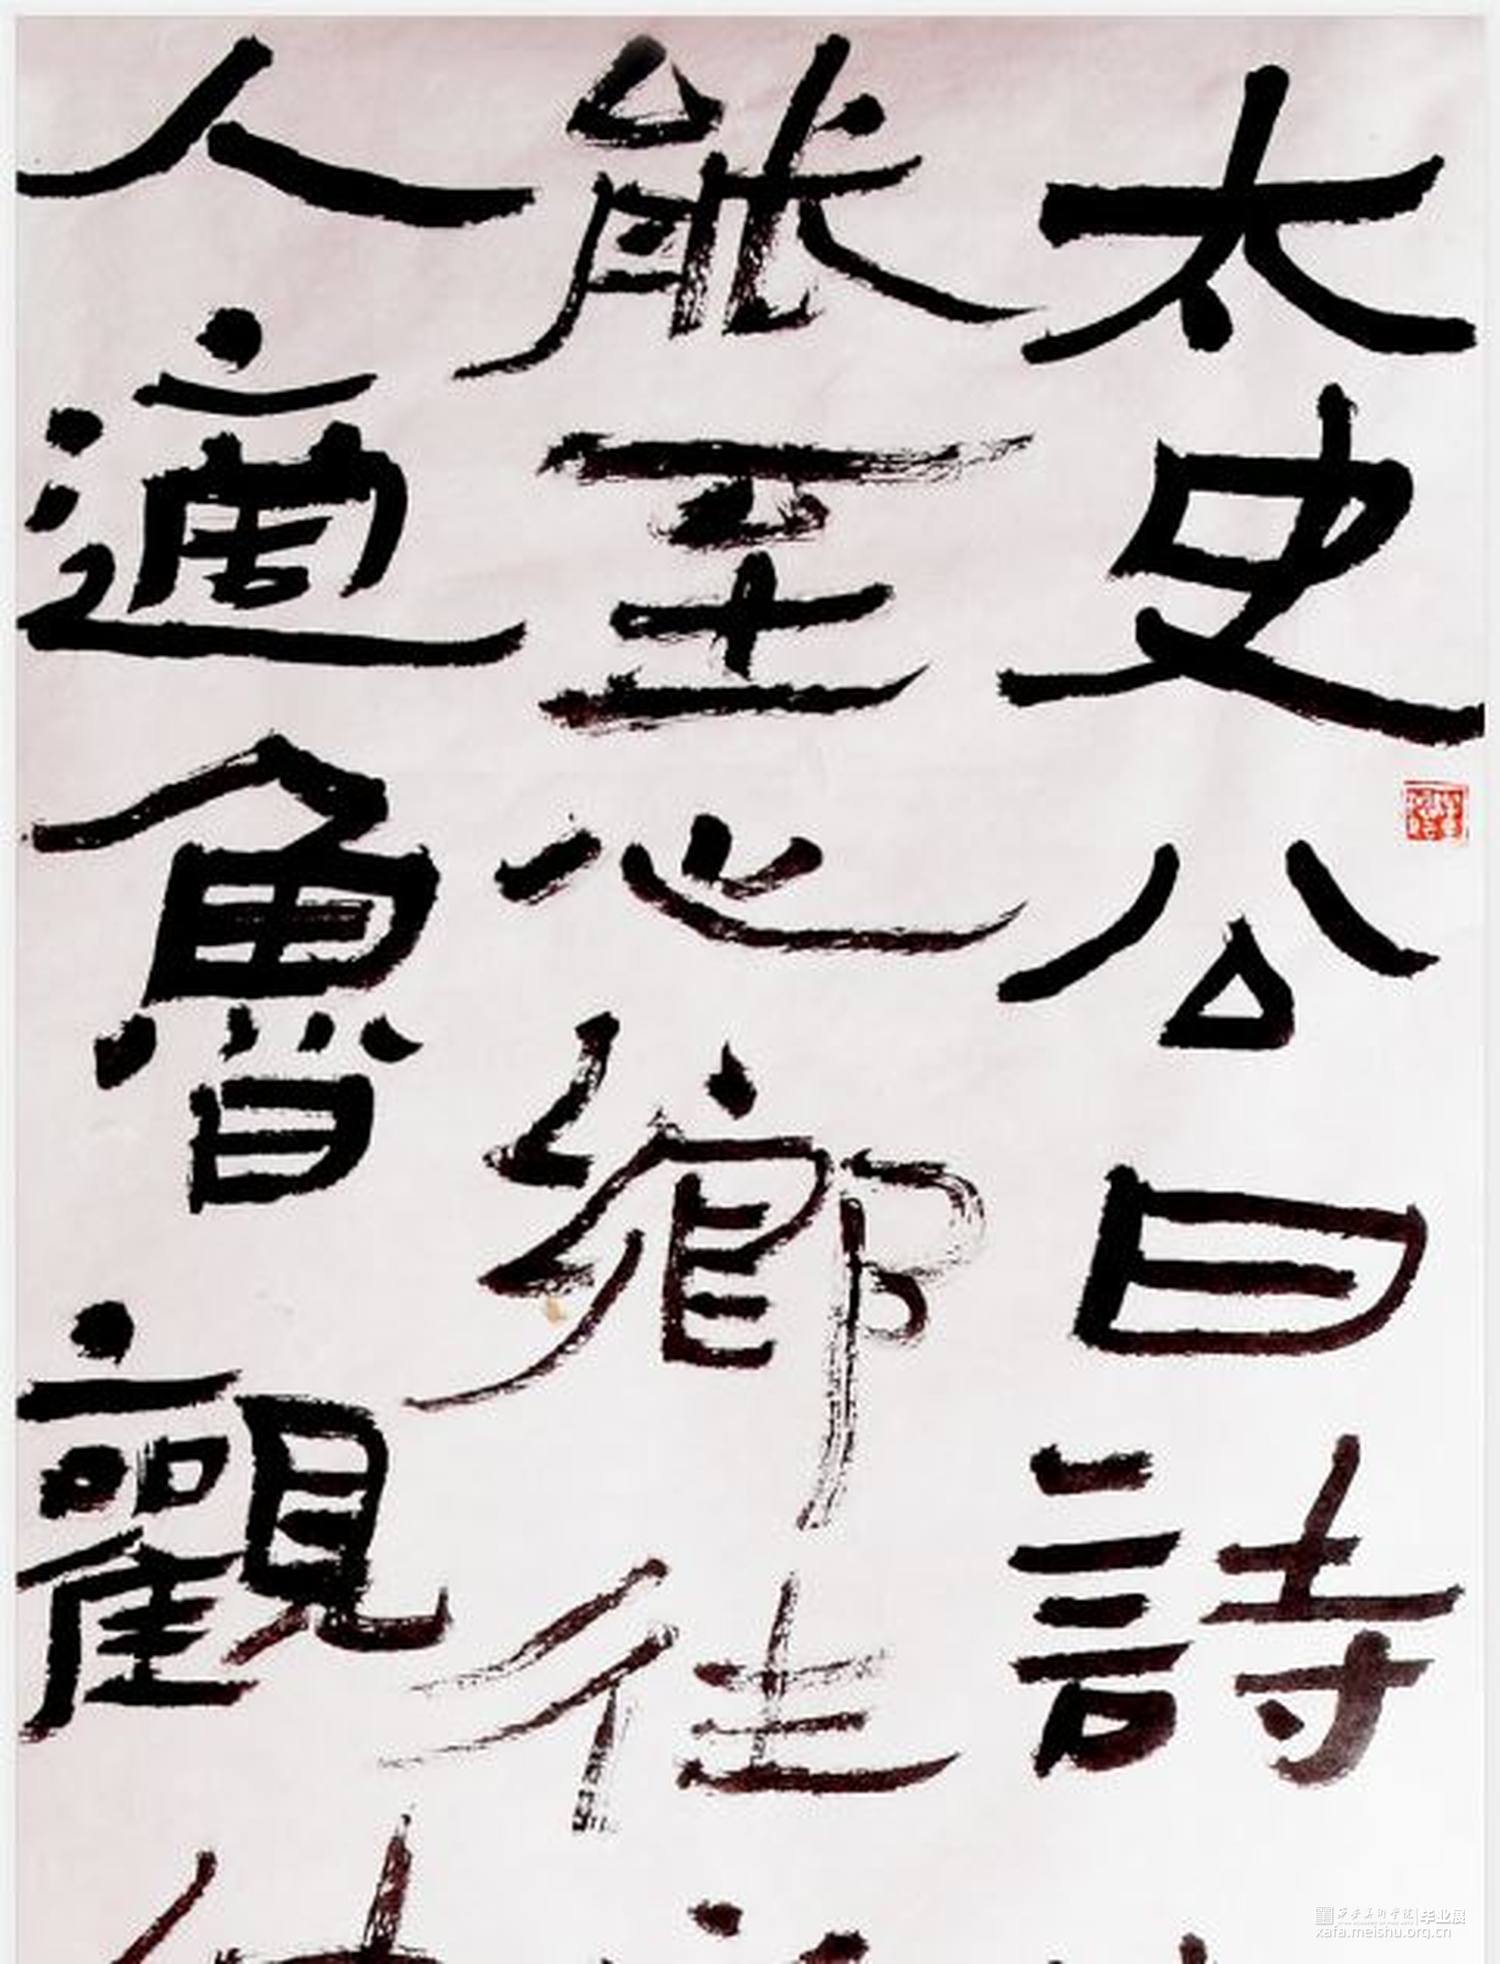 太史公曰詩
能至心鄉往
人適魯觀
毕业展
xafa.meishu.org.cn